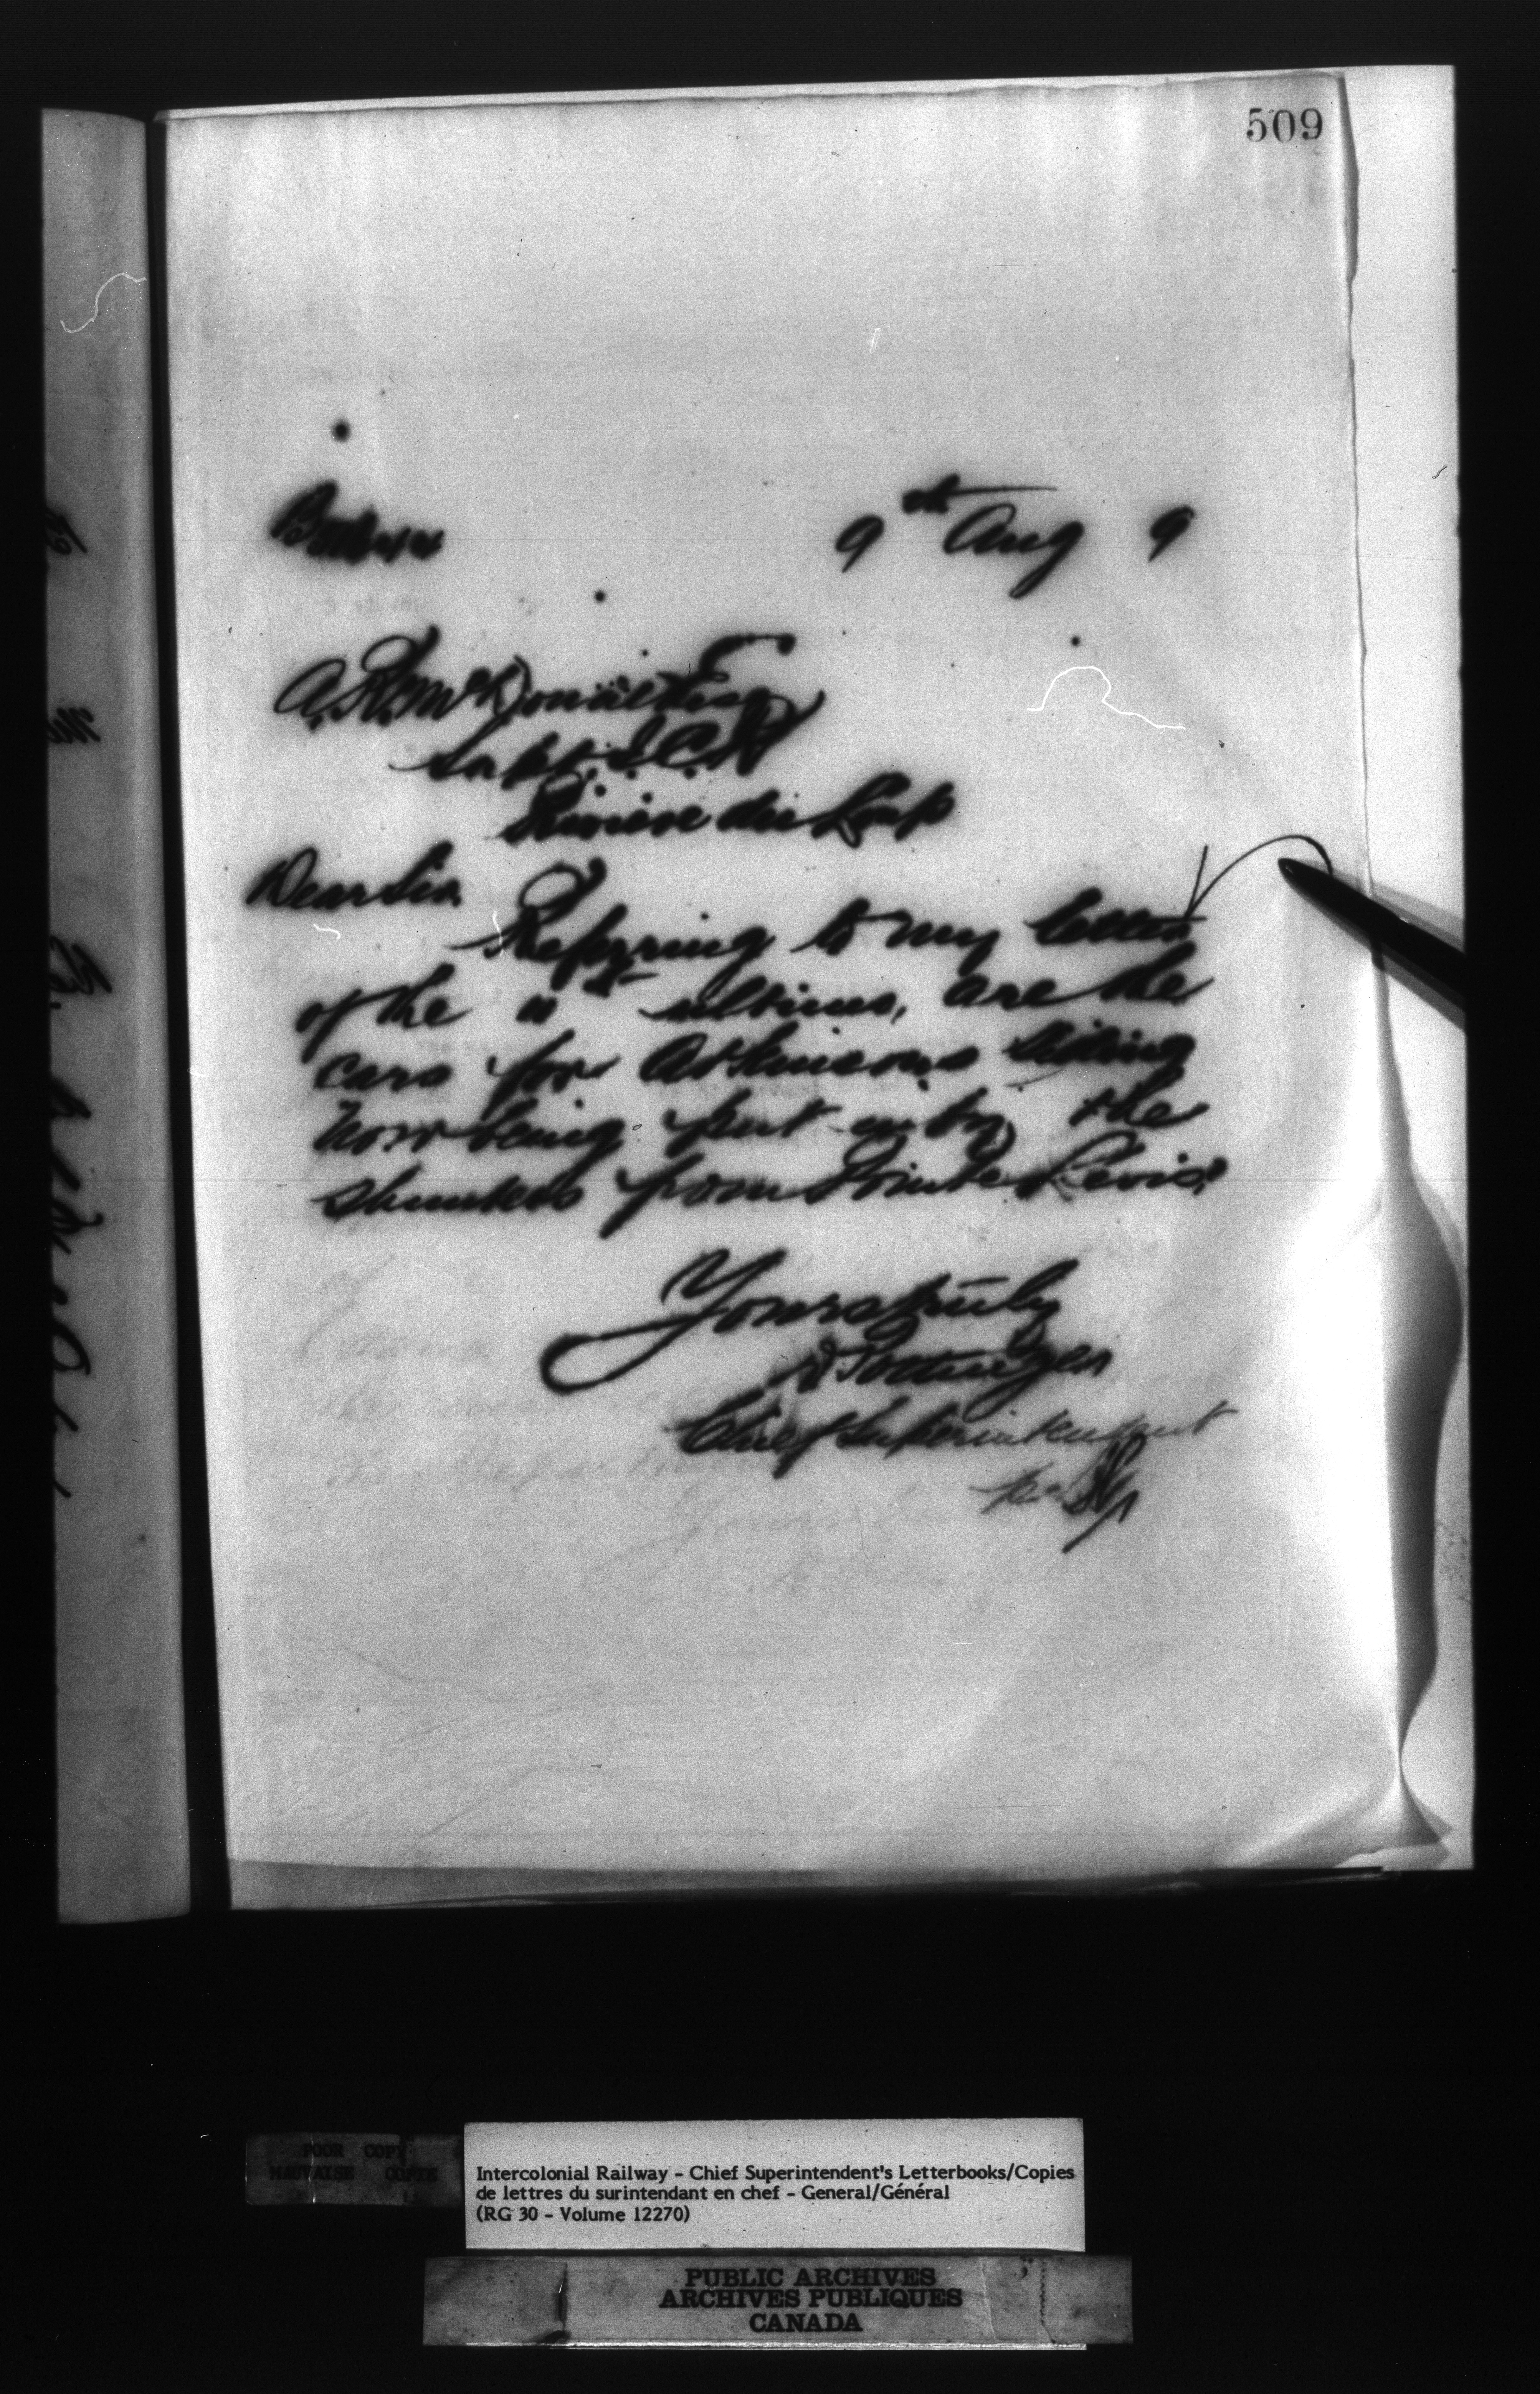 509
9th Aug 9
A.R. McDonald Esq
Supt. I.C.R
Riviere du Loup
Dear Sir
Referring to my letter
of the 11th ultimo, are the
cars for Atkinsons Siding
now being put in by the
shunters from Pointe Levis?
Yours truly
D Pottinger
Chief Superintendent
per
POOR COPY
MAUVAISE COPIE
Intercolonial Railway - Chief Superintendent's Letterbooks/Copies
de lettres du surintendant en chef - General/Général
(RG 30 - Volume 12270)
PUBLIC ARCHIVES
ARCHIVES PUBLIQUES
CANADA